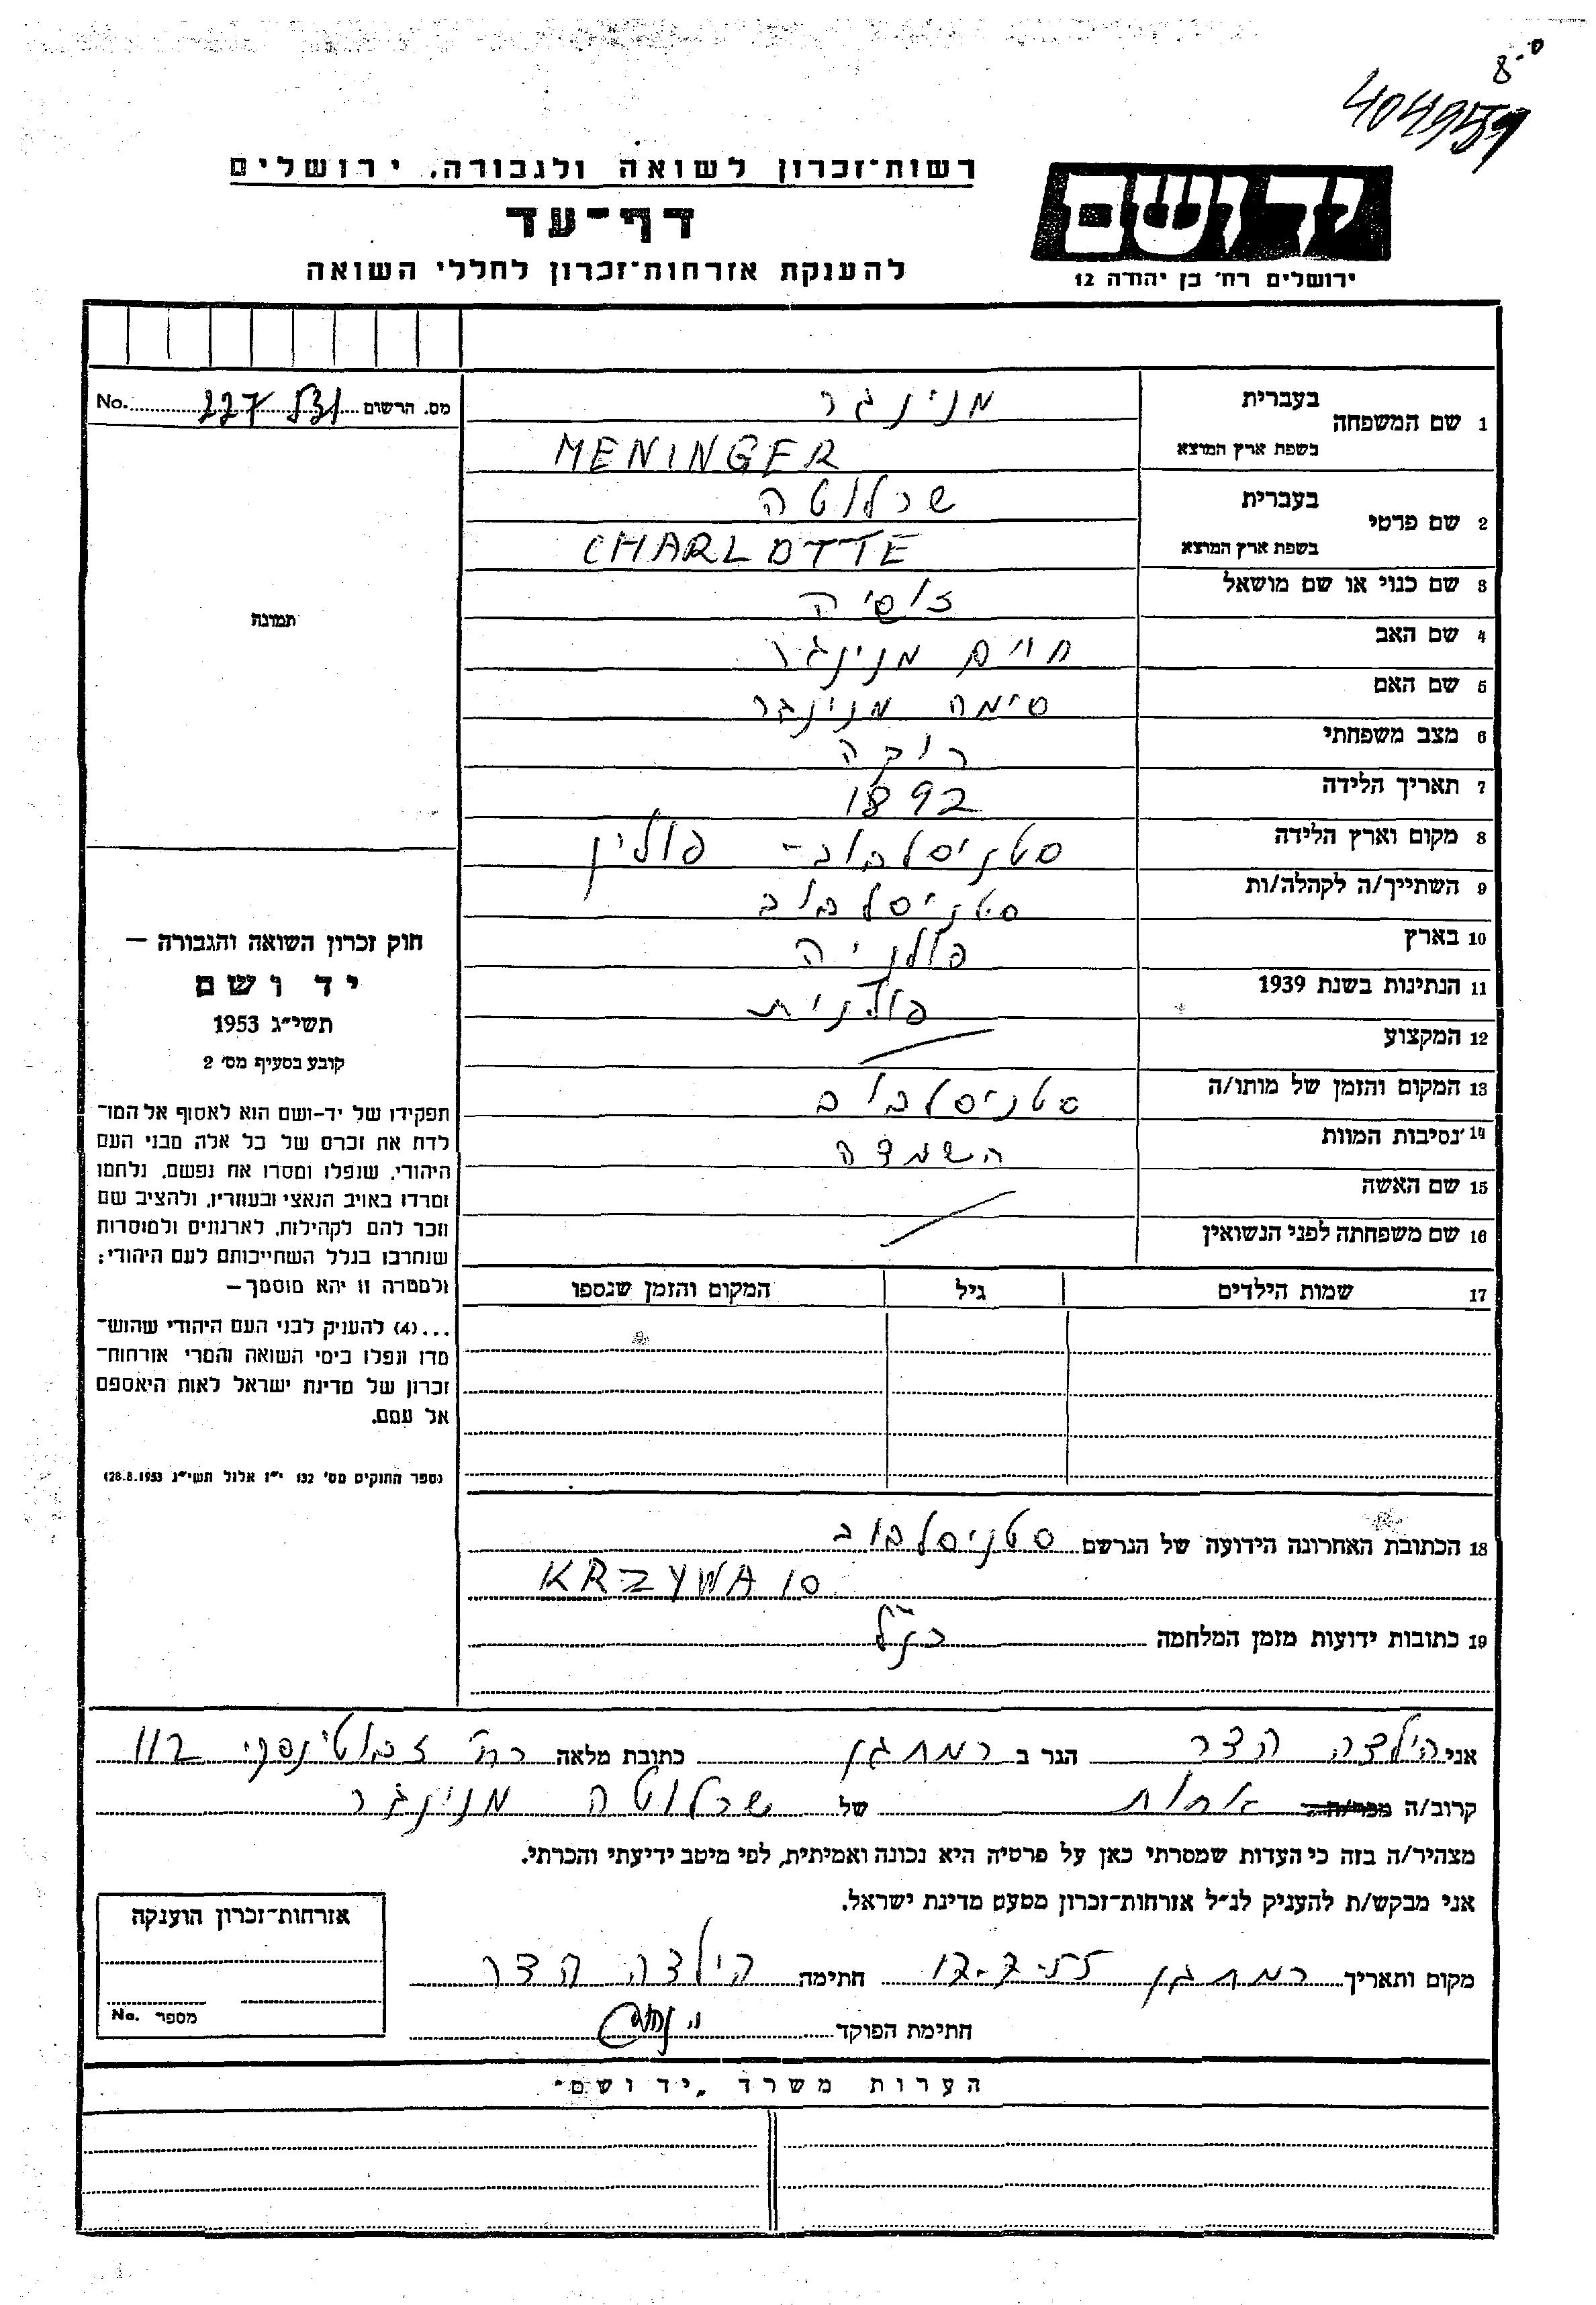 404959
רשות־זכרון לשואה ולגבורה, ירושלים
דף־עד
להענקת אזרחות־זכרון לחללי השואה
יד ושם
ירושלים רח׳ בן יהודה 12
מס. הרשום No. 227
1 שם המשפחה בעברית מנינגר
בשפת ארץ המוצא MENINGER
2 שם פרטי בעברית שרלוטה
בשפת ארץ המוצא CHARLOTTE
3 שם כנוי או שם מושאל זוסיה
4 שם האב חיים מנינגר
5 שם האם סימה מנינגר
6 מצב משפחתי רוקה
7 תאריך הלידה 1892
8 מקום וארץ הלידה סטניסלבוב - פולין
9 השתייך/ה לקהלה/ות סטניסלבוב
10 בארץ פולניה
11 הנתינות בשנת 1939 פולנית
12 המקצוע
13 המקום והזמן של מותו/ה סטניסלבוב
14 נסיבות המוות השמדה
15 שם האשה
16 שם משפחתה לפני הנשואין
17 שמות הילדים גיל המקום והזמן שנספו
18 הכתובת האחרונה הידועה של הנרשם סטניסלבוב
KRZYWA 10
19 כתובות ידועות מזמן המלחמה כנ״ל
תמונה
חוק זכרון השואה והגבורה –
יד ושם
תשי״ג 1953
קובע בסעיף מס׳ 2
תפקידו של יד-ושם הוא לאסוף אל המו־
לדת את זכרם של כל אלה מבני העם
היהודי, שנפלו ומסרו את נפשם, נלחמו
ומרדו באויב הנאצי ובעוזריו, ולהציב שם
וזכר להם לקהילות, לארגונים ולמוסדות
שנחרבו בגלל השתייכותם לעם היהודי;
ולמטרה זו יהא מוסמך –
...(4) להעניק לבני העם היהודי שהוש־
מדו ונפלו בימי השואה והמרי אזרחות־
זכרון של מדינת ישראל לאות היאספם
אל עמם.
(ספר החוקים מס׳ 132 י״ז אלול תשי״ג 28.8.1953)
אני הילדה הדר הגר ב רמת גן כתובת מלאה רח׳ ז׳בוטינסקי 112
קרוב/ה מכר/ה אחות של שרלוטה מנינגר
מצהיר/ה בזה כי העדות שמסרתי כאן על פרטיה היא נכונה ואמיתית, לפי מיטב ידיעתי והכרתי.
אני מבקש/ת להעניק לנ״ל אזרחות־זכרון מטעם מדינת ישראל.
מקום ותאריך רמת גן 12-7-55 חתימה הילדה הדר
חתימת הפוקד
אזרחות־זכרון הוענקה
מספר No.
הערות משרד „יד ושם״